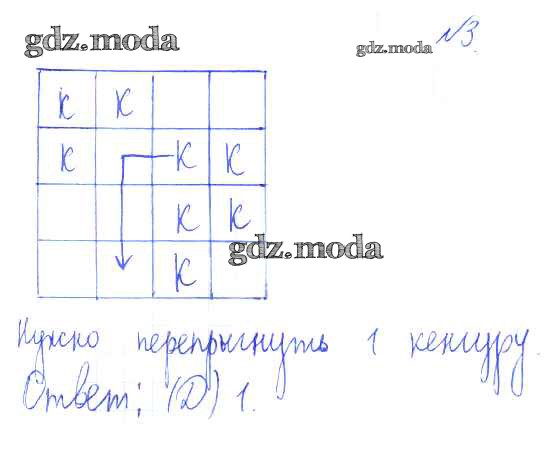 gdz.moda
gdz.moda №3.
К К
К К К
К К
gdz.moda
К
Нужно перепрыгнуть 1 кенгуру.
Ответ: (D) 1.